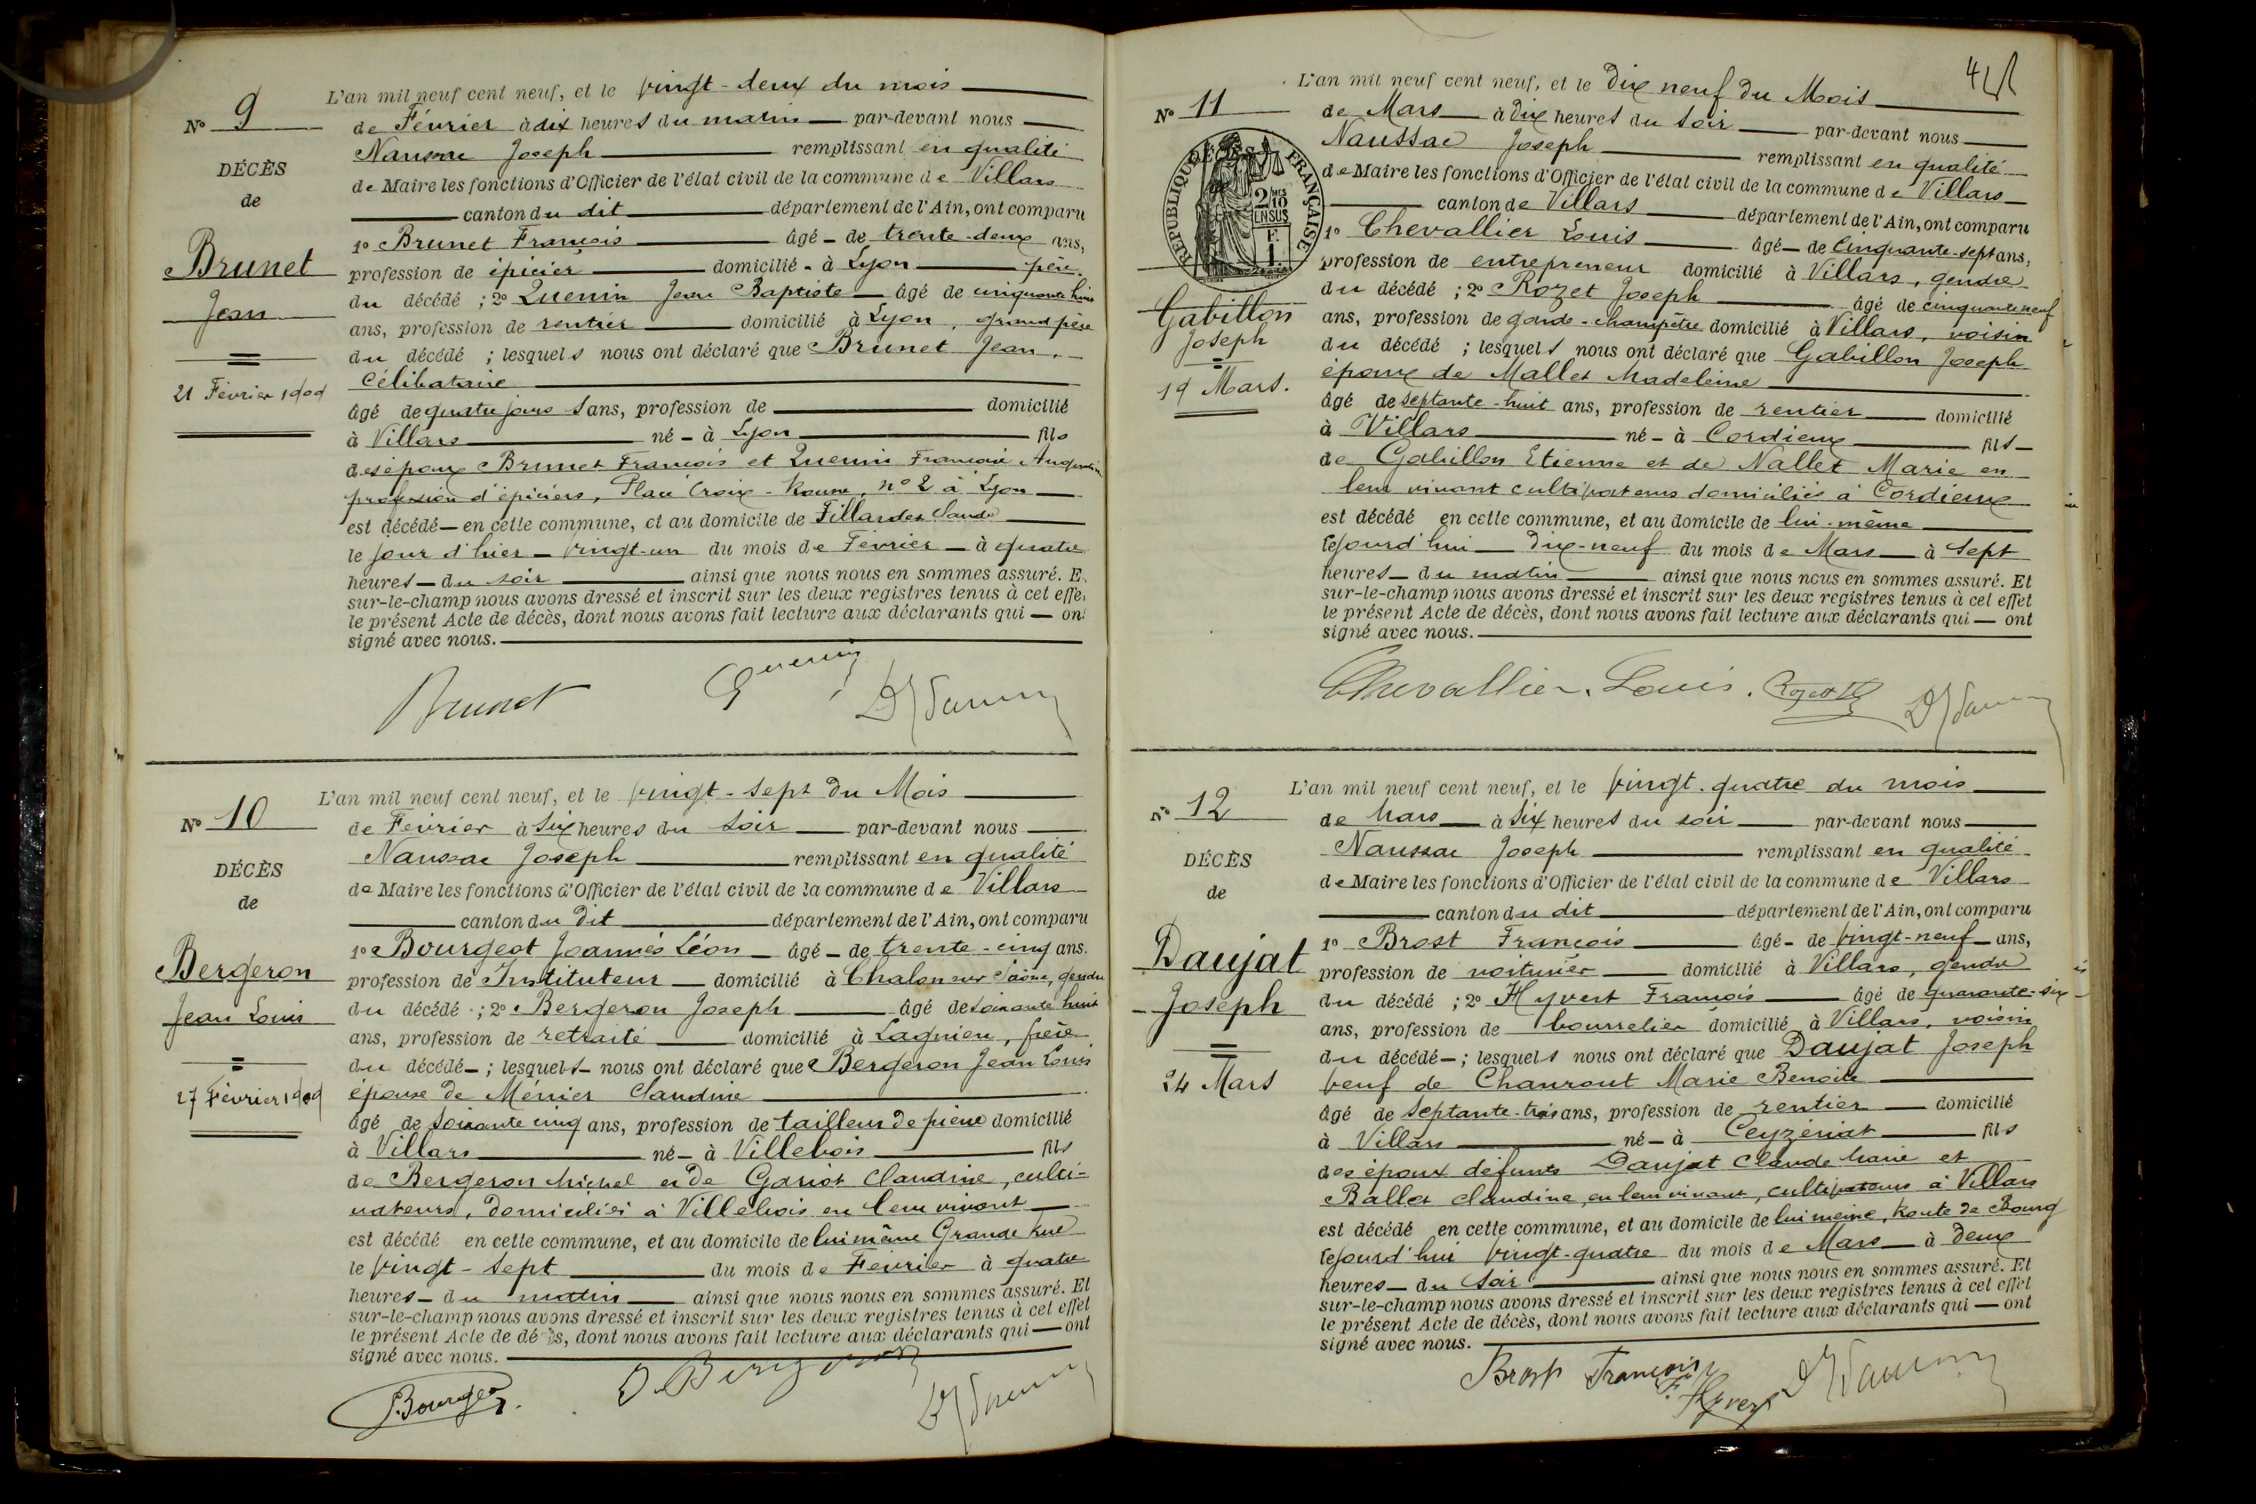 N° 9
DÉCÈS
de
Brunet
Jean
21 Février 1909
L'an mil neuf cent neuf, et le vingt-deux du mois
de Février à dix heures du matin par-devant nous
Naussac Joseph remplissant en qualité
de Maire les fonctions d'Officier de l'état civil de la commune de Villars
canton du dit département de l'Ain, ont comparu
1° Brunet François âgé de trente-deux ans,
profession de épicier domicilié à Lyon père
du décédé ; 2° Quenin Jean Baptiste âgé de cinquante huit
ans, profession de rentier domicilié à Lyon, grand père
du décédé ; lesquels nous ont déclaré que Brunet Jean,
célibataire
âgé de quatre jours sans, profession de domicilié
à Villars né à Lyon fils
des époux Brunet François et Quenin Françoise
profession d'épiciers, Place Croix-Rousse, n° 2 à Lyon
est décédé en cette commune, et au domicile de Fillardet Claude
le jour d'hier vingt-un du mois de Février à quatre
heures du soir ainsi que nous nous en sommes assuré. E
sur-le-champ nous avons dressé et inscrit sur les deux registres tenus à cet effe
le présent Acte de décès, dont nous avons fait lecture aux déclarants qui on
signé avec nous.
Brunet Quenin
N° 10
DÉCÈS
de
Bergeron
Jean Louis
27 Février 1909
L'an mil neuf cent neuf, et le vingt-sept du Mois
de Février à six heures du soir par-devant nous
Naussac Joseph remplissant en qualité
de Maire les fonctions d'Officier de l'état civil de la commune de Villars
canton du dit département de l'Ain, ont comparu
1° Bourgeot Joannès Léon âgé de trente-cinq ans.
profession de Instituteur domicilié à Chalon sur Saône, gendre
du décédé ; 2° Bergeron Joseph âgé de soixante huit
ans, profession de retraité domicilié à Lagnieu, frère
du décédé ; lesquels nous ont déclaré que Bergeron Jean Louis
épouse de Mérrier Claudine
âgé de soixante cinq ans, profession de tailleur de pierre domicilié
à Villars né à Villebois fils
de Bergeron Michel et de Gariot Claudine, culti-
vateurs, domiciliés à Villebois en leur vivant
est décédé en cette commune, et au domicile de lui même Grande Rue
le vingt-sept du mois de Février à quatre
heures du matin ainsi que nous nous en sommes assuré. Et
sur-le-champ nous avons dressé et inscrit sur les deux registres tenus à cet effet
le présent Acte de décès, dont nous avons fait lecture aux déclarants qui ont
signé avec nous.
Bourgeot Bergeron
N° 11
RÉPUBLIQUE FRANÇAISE
2/10 EN SUS
F. 1.
Gabillon
Joseph
19 Mars.
L'an mil neuf cent neuf, et le Dix neuf du Mois
de Mars à Dix heures du soir par-devant nous
Naussac Joseph remplissant en qualité
de Maire les fonctions d'Officier de l'état civil de la commune de Villars
canton de Villars département de l'Ain, ont comparu
1° Chevallier Louis âgé de Cinquante-sept ans,
profession de entrepreneur domicilié à Villars, gendre
du décédé ; 2° Rozet Joseph âgé de cinquante neuf
ans, profession de garde-champêtre domicilié à Villars, voisin
du décédé ; lesquels nous ont déclaré que Gabillon Joseph
époux de Mallet Madeleine
âgé de septante-huit ans, profession de rentier domicilié
à Villars né à Cordieux fils
de Gabillon Etienne et de Nallet Marie en
leur vivant cultivateurs domiciliés à Cordieux
est décédé en cette commune, et au domicile de lui-même
lejourd'hui Dix-neuf du mois de Mars à Sept
heures du matin ainsi que nous nous en sommes assuré. Et
sur-le-champ nous avons dressé et inscrit sur les deux registres tenus à cet effet
le présent Acte de décès, dont nous avons fait lecture aux déclarants qui ont
signé avec nous.
Chevallier Louis. Rozet
N° 12
DÉCÈS
de
Daujat
Joseph
24 Mars
L'an mil neuf cent neuf, et le vingt-quatre du mois
de Mars à six heures du soir par-devant nous
Naussac Joseph remplissant en qualité
de Maire les fonctions d'Officier de l'état civil de la commune de Villars
canton du dit département de l'Ain, ont comparu
1° Brost François âgé de vingt-neuf ans,
profession de voiturier domicilié à Villars, gendre
du décédé ; 2° Hyvert François âgé de quarante-six
ans, profession de bourrelier domicilié à Villars, voisin
du décédé ; lesquels nous ont déclaré que Daujat Joseph
veuf de Chanrout Marie Benoite
âgé de septante-trois ans, profession de rentier domicilié
à Villars né à Ceyzériat fils
des époux défunts Daujat Claude Marie et
Ballet Claudine, en leur vivant, cultivateurs à Villars
est décédé en cette commune, et au domicile de lui même, Route de Bourg
lejourd'hui vingt-quatre du mois de Mars à Deux
heures du soir ainsi que nous nous en sommes assuré. Et
sur-le-champ nous avons dressé et inscrit sur les deux registres tenus à cet effet
le présent Acte de décès, dont nous avons fait lecture aux déclarants qui ont
signé avec nous.
Brost François
F. Hyvert